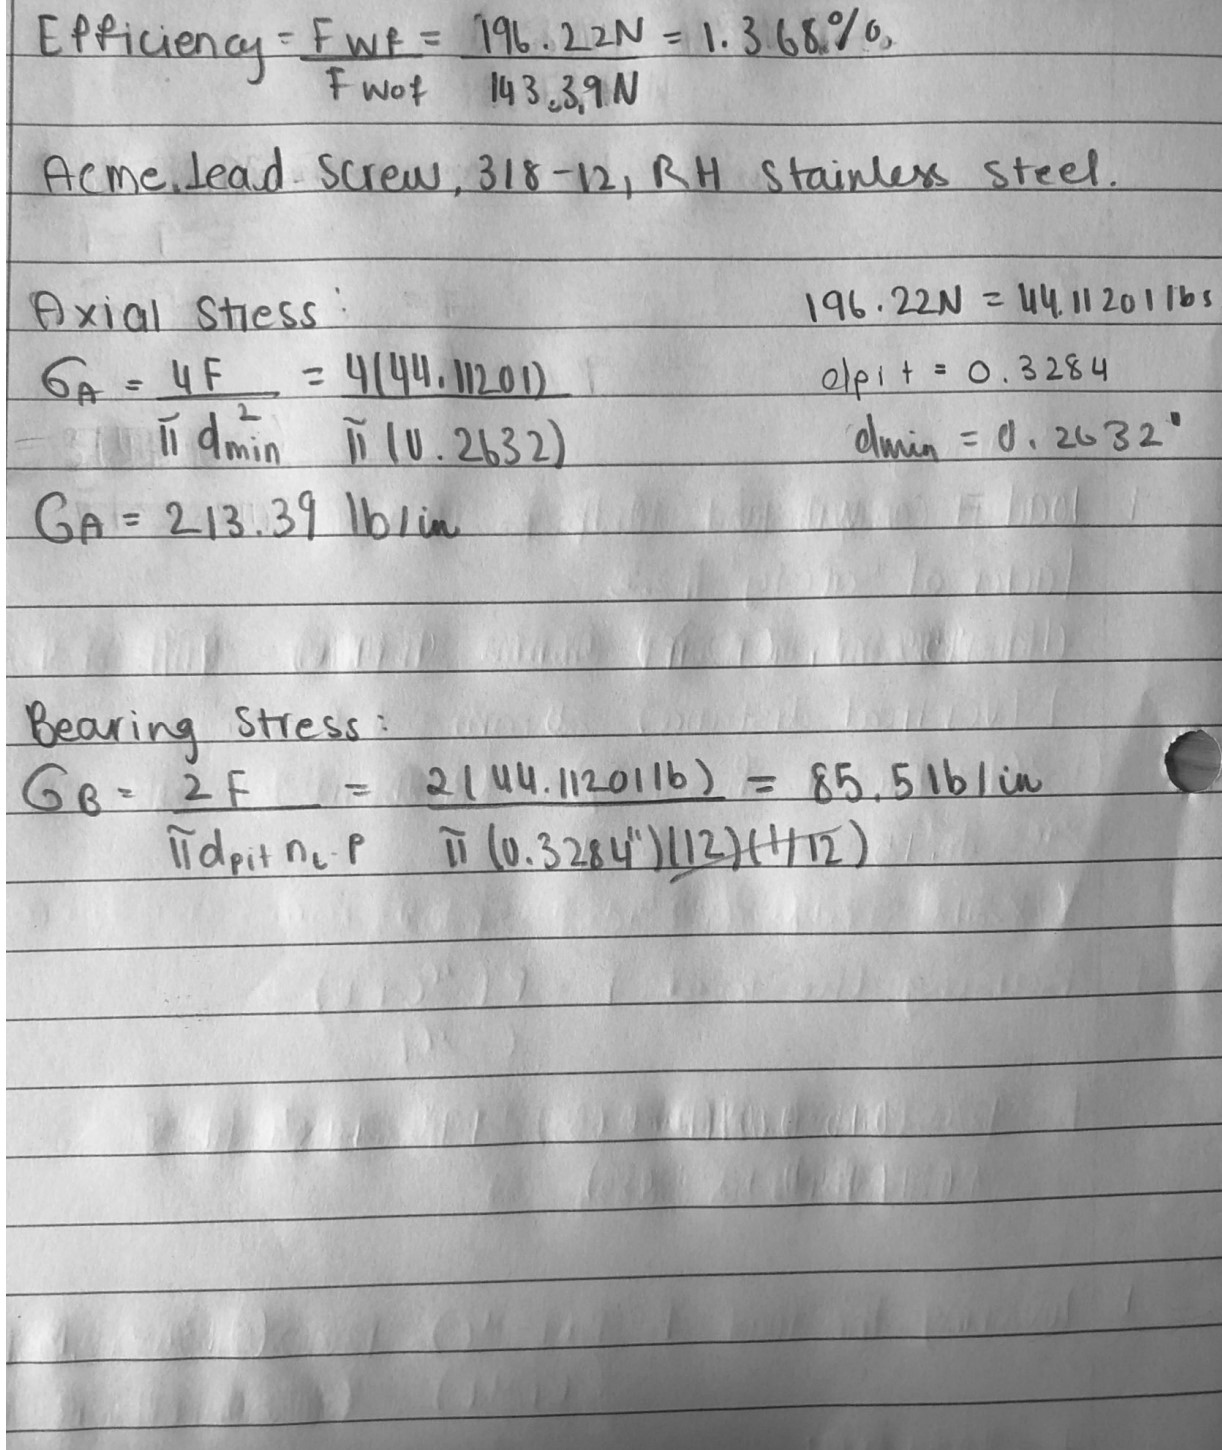 Efficiency = FWf / FWof = 196.22N / 143.39N = 1.368%.
Acme Lead Screw, 3/8-12, RH Stainless Steel.
Axial Stress: 196.22N = 44.11201 lbs
σA = 4F / π d²min = 4(44.11201) / π (0.2632) dpit = 0.3284
dmin = 0.2632"
σA = 213.39 lb/in
Bearing Stress:
σB = 2F / π dpit nt · P = 2(44.11201lb) / π (0.3284")(12)(1/12) = 85.5 lb/in